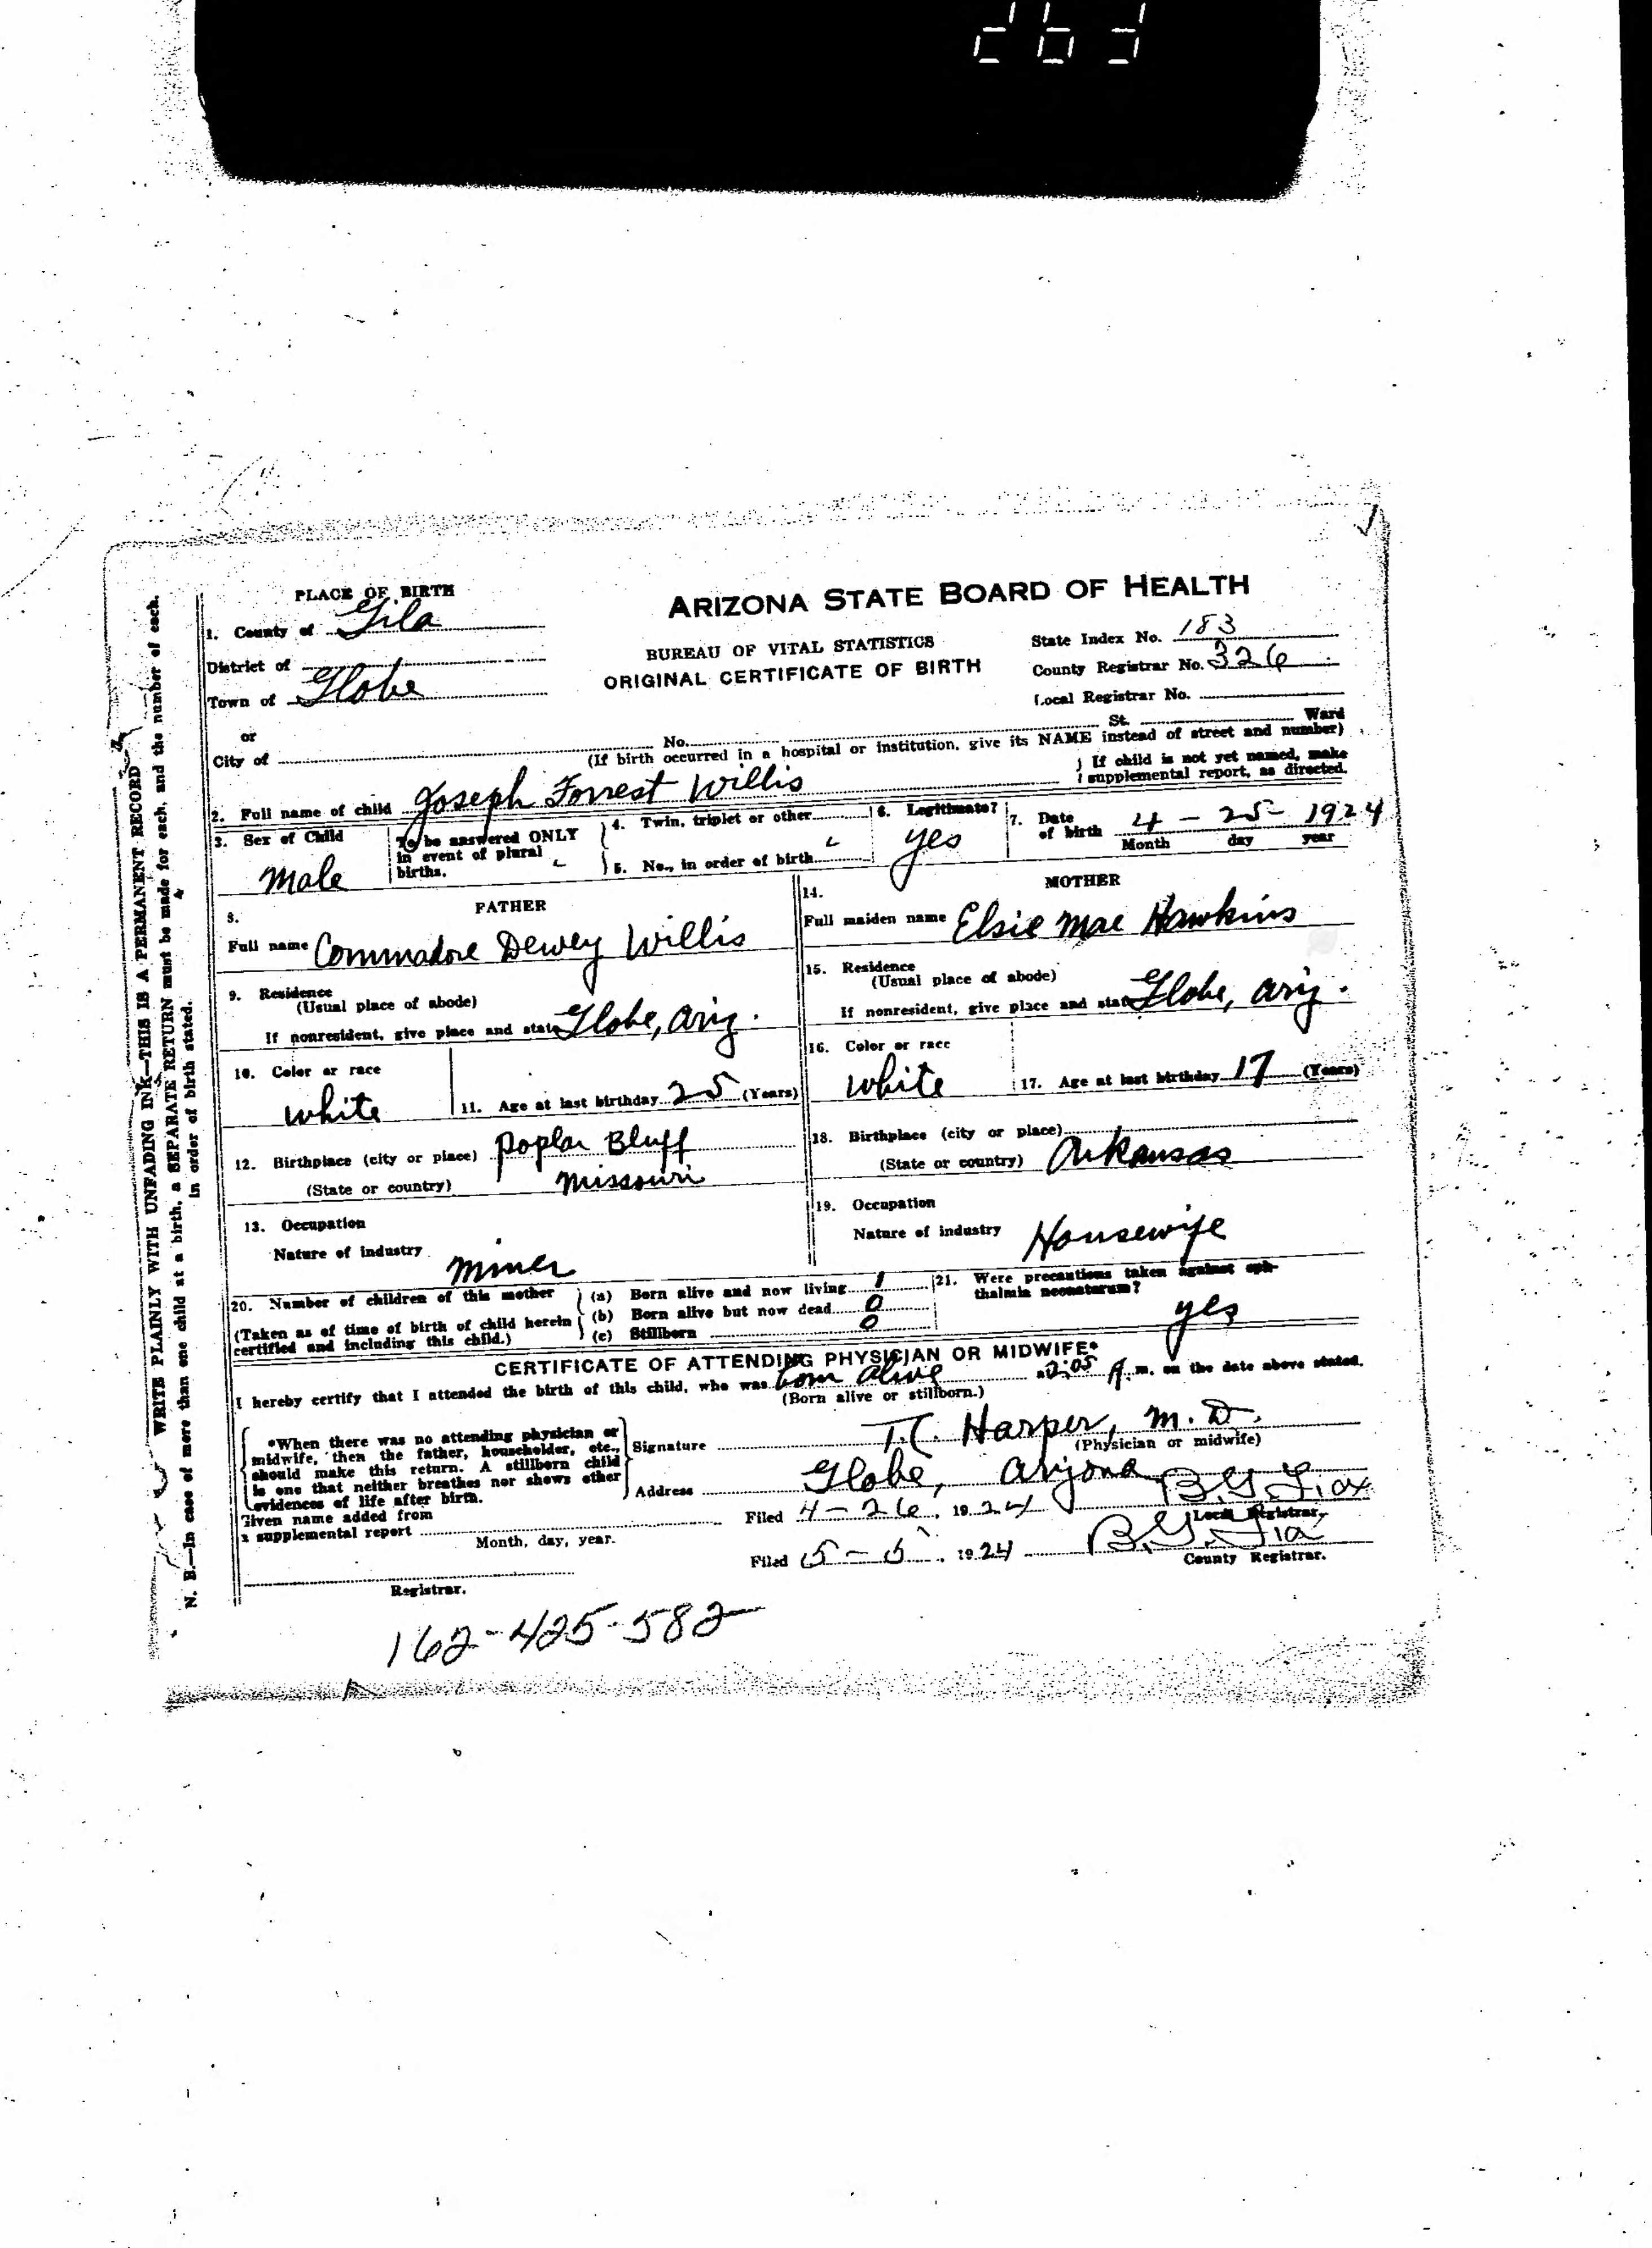 PLACE OF BIRTH
1. County of Gila
District of
Town of Globe
or
City of
ARIZONA STATE BOARD OF HEALTH
BUREAU OF VITAL STATISTICS
ORIGINAL CERTIFICATE OF BIRTH
State Index No. 183
County Registrar No. 326
Local Registrar No.
No. St. Ward
(If birth occurred in a hospital or institution, give its NAME instead of street and number)
2. Full name of child Joseph Forrest Willis
If child is not yet named, make
supplemental report, as directed.
3. Sex of Child
Male
To be answered ONLY
in event of plural
births.
4. Twin, triplet or other
5. No., in order of birth
6. Legitimate?
yes
7. Date
of birth 4 - 25 - 1924
Month day year
FATHER
8.
Full name Commadore Dewey Willis
9. Residence
(Usual place of abode)
If nonresident, give place and state Globe, Ariz.
10. Color or race
White
11. Age at last birthday 25 (Years)
12. Birthplace (city or place) Poplar Bluff
(State or country) Missouri
13. Occupation
Nature of industry
Miner
MOTHER
14.
Full maiden name Elsie Mae Hawkins
15. Residence
(Usual place of abode)
If nonresident, give place and state Globe, Ariz.
16. Color or race
White
17. Age at last birthday 17 (Years)
18. Birthplace (city or place)
(State or country) Arkansas
19. Occupation
Nature of industry Housewife
20. Number of children of this mother
(Taken as of time of birth of child herein
certified and including this child.)
(a) Born alive and now living 1
(b) Born alive but now dead 0
(c) Stillborn 0
21. Were precautions taken against oph-
thalmia neonatorum?
yes
CERTIFICATE OF ATTENDING PHYSICIAN OR MIDWIFE*
I hereby certify that I attended the birth of this child, who was born alive 2:05 A. m. on the date above stated.
(Born alive or stillborn.)
*When there was no attending physician or
midwife, then the father, householder, etc.,
should make this return. A stillborn child
is one that neither breathes nor shows other
evidences of life after birth.
Signature T.C. Harper, M.D.
(Physician or midwife)
Address Globe, Arizona
Given name added from
a supplemental report
Month, day, year.
Registrar.
Filed 4-26, 1924 B.G. Fox
Local Registrar.
Filed 5-5, 1924
County Registrar.
162-425-582
WRITE PLAINLY WITH UNFADING INK—THIS IS A PERMANENT RECORD
N. B.—In case of more than one child at a birth, a SEPARATE RETURN must be made for each, and the number of each,
in order of birth stated.